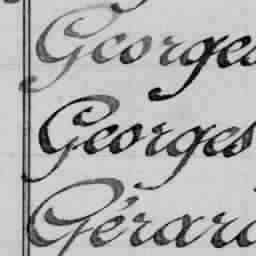 Georges
Georges
Gérard